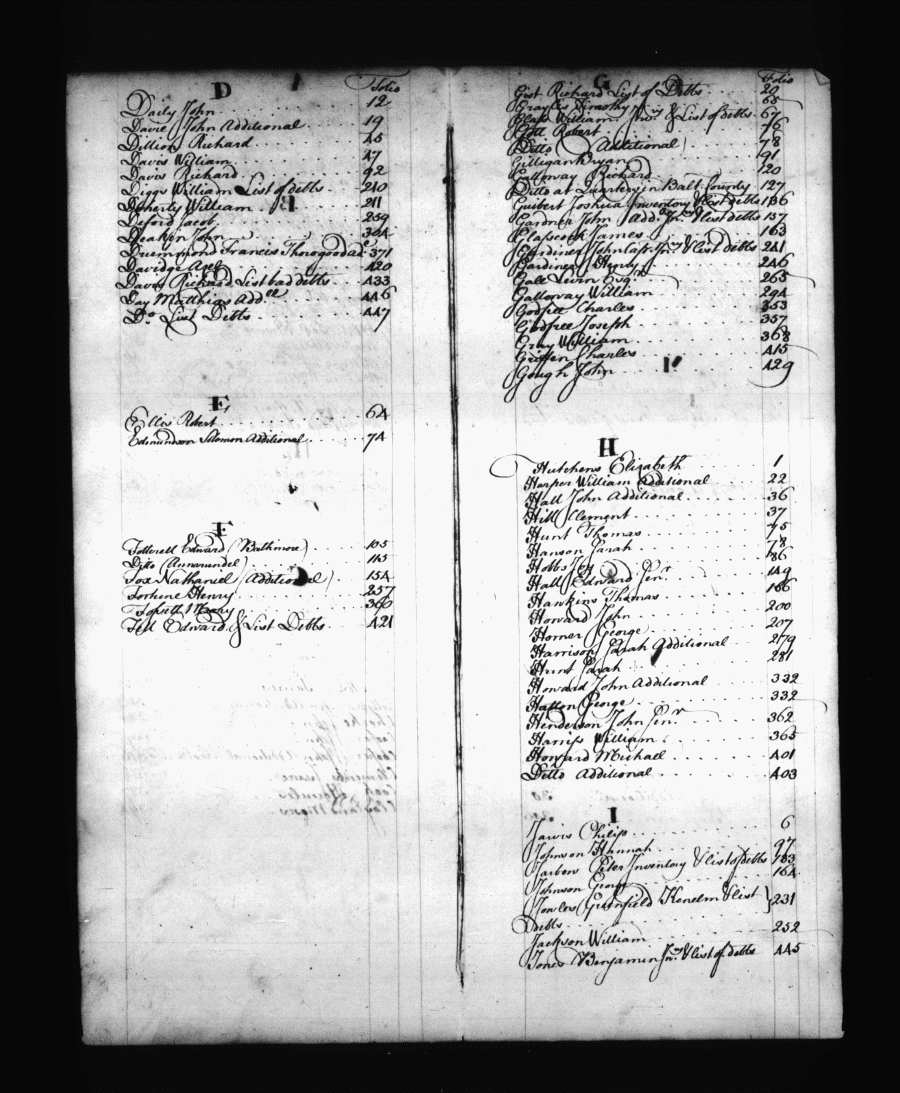 D
Folio
Daily John 12
Davie John Additional 19
Dillion Richard 45
Davis William 47
Davis Richard 92
Diggs William List of debts 210
Doherty William 211
Deford Jacob 259
Deakin John 304
Drummond Francis Thorogood Add 371
Davidge Azel 420
Davis Richard List bad debts 433
Day Matthias Addll 446
Do List Debts 447
E
Ellis Robert 64
Edmundson Solomon Additional 74
F
Fotterell Edward (Balthmore) 105
Ditto (Annarundel) 115
Fox Nathaniel (Additional) 154
Forhine Henry 257
Fossett Mary 360
Fell Edward & List Debts 421
G
Folio
Gist Richard List of Debts 20
Timothy 65
Glass William Inv & List of debts 67
Gott Robert 76
Ditto (Additional) 78
Gilligan Bryan 91
Galloway Richard 120
Ditto at Quarter in Balt. County 127
Guibert Joshua Inventory & list debts 136
Gardner John Add Inv & list debts 157
Glasscock James 163
Gardiner John Inv & list debts 241
Gardiner Henry 246
Gale Levin Esqr 265
Galloway William 294
Godfree Charles 353
Godfree Joseph 357
Gray William 368
Griffen Charles 415
Gough John 429
H
Hutchens Elizabeth 1
Harper William Additional 22
Hall John Additional 36
Hill Clement 37
Hunt Thomas 75
Hanson Sarah 78
Hobbs Joy 86
Hall Edward Senr 149
Hawkins Thomas 166
Howard John 200
Homer George 207
Harrison Sarah Additional 279
Hunt Sarah 281
Howard John Additional 332
Hatton George 332
Henderson John Senr 362
Harriss William 365
Howard Michael 401
Ditto Additional 403
I
Jarvis Philip 6
Johnson Hannah 97
Jarbow Peter Inventory & list of debts 133
Johnson George 164
Jowles Greenfield Kenelm & list } 231
Debts
Jackson William 252
Jones Benjamin Inv & list of debts 445